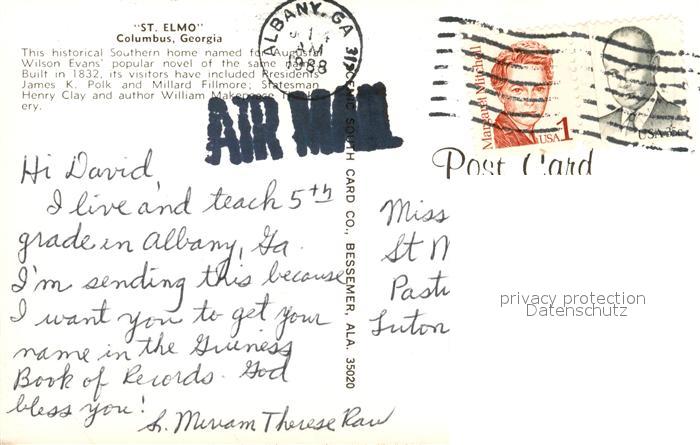 "ST. ELMO"
Columbus, Georgia
This historical Southern home named for Augusta
Wilson Evans' popular novel of the same
Built in 1832, its visitors have included Presidents
James K. Polk and Millard Fillmore; Statesman
Henry Clay and author William Makepeace
ery.
ALBANY, GA
AM
1988
AIR MAIL
Margaret Mitchell
USA 1
USA
Post Card
SCENIC SOUTH CARD CO., BESSEMER, ALA. 35020
Hi David,
I live and teach 5th
grade in Albany, Ga.
I'm sending this because
I want you to get your
name in the Guiness
Book of Records. God
bless you!
Sr. Miriam Therese Raw
Miss
St M
Past
Luton
privacy protection
Datenschutz